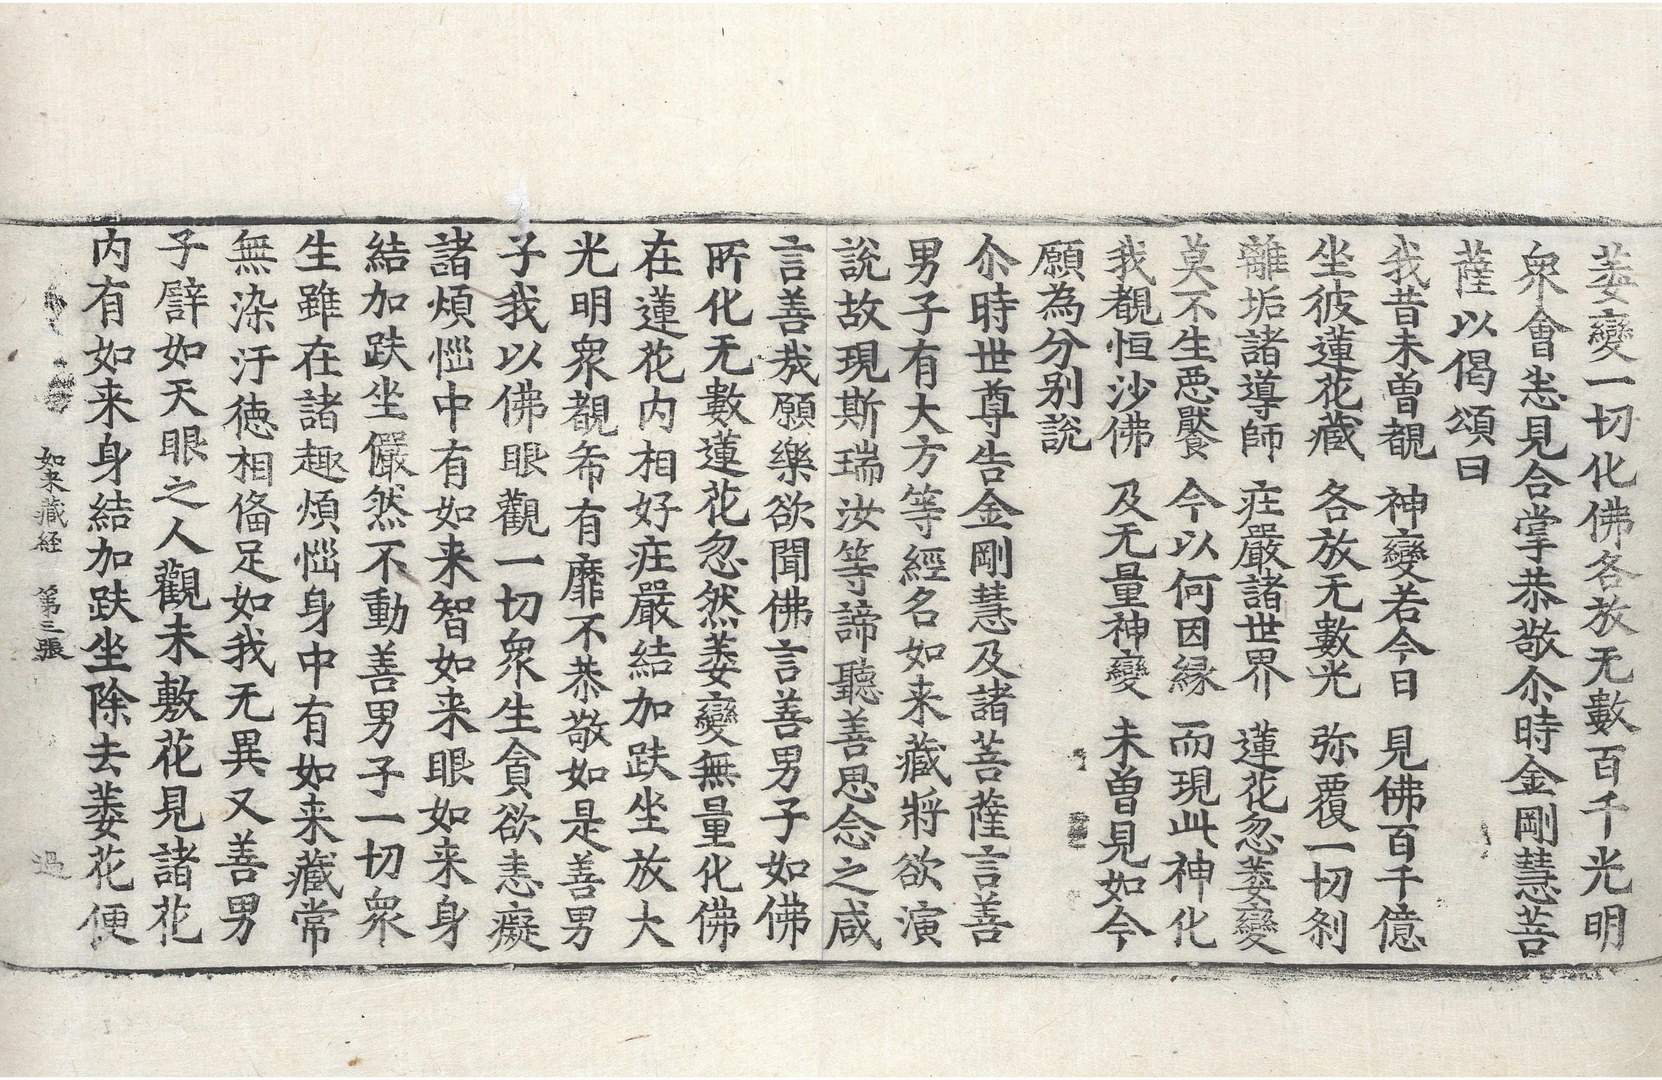 萎變一切化佛各放无數百千光明
衆會悉見合掌恭敬尒時金剛慧菩
薩以偈頌曰
我昔未曾覩　神變若今日　見佛百千億
坐彼蓮花藏　各放无數光　弥覆一切刹
離垢諸導師　莊嚴諸世界　蓮花忽萎變
莫不生惡饜　今以何因緣　而現此神化
我覩恒沙佛　及无量神變　未曾見如今
願為分别說
尒時世尊告金剛慧及諸菩薩言善
男子有大方等經名如来藏將欲演
說故現斯瑞汝等諦聽善思念之咸
言善哉願樂欲聞佛言善男子如佛
所化无數蓮花忽然萎變無量化佛
在蓮花内相好莊嚴結加趺坐放大
光明衆覩希有靡不恭敬如是善男
子我以佛眼觀一切衆生貪欲恚癡
諸煩惱中有如来智如来眼如来身
結加趺坐儼然不動善男子一切衆
生雖在諸趣煩惱身中有如来藏常
無染汙德相俻足如我无異又善男
子譬如天眼之人觀未敷花見諸花
内有如来身結加趺坐除去萎花便
如来藏經　第三張　過